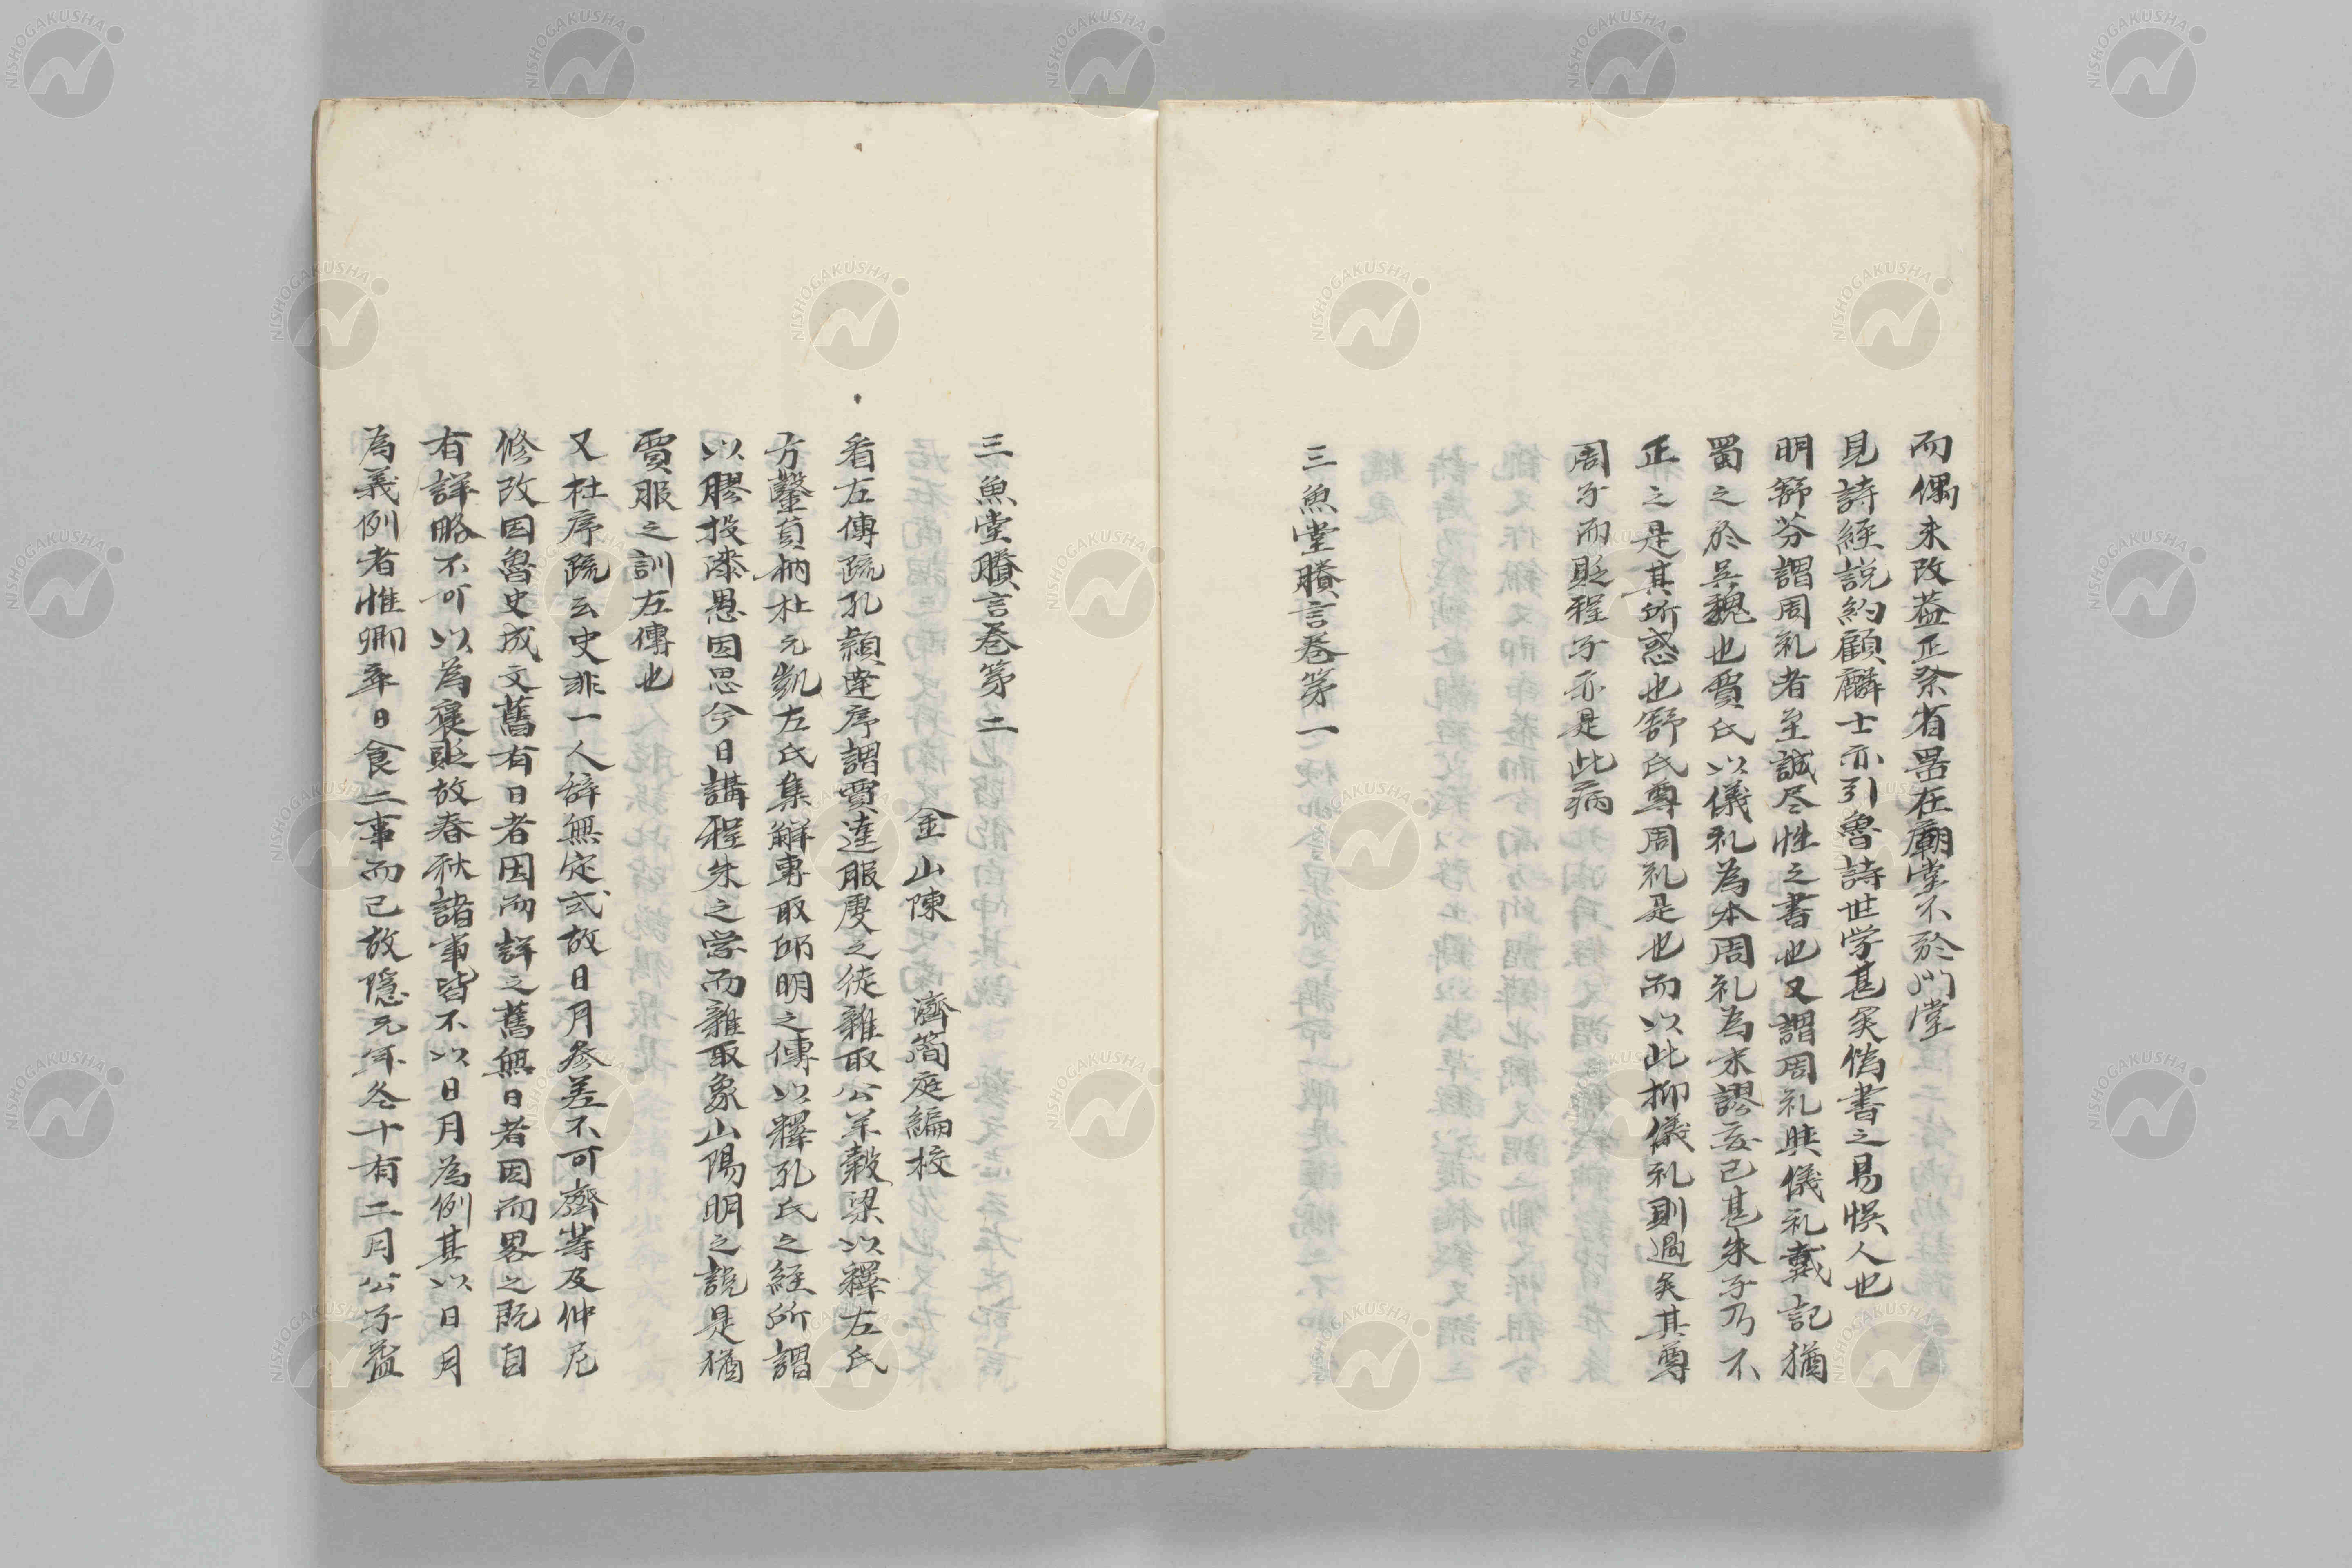 而偶未改蓋正祭省器在廟堂不於門堂
見詩經説約顧麟士亦引魯詩世学甚矣偽書之易悞人也
明舒芬謂周礼者至誠尽性之書也又謂周礼與儀礼戴記猶
蜀之於吴魏也賈氏以儀礼為本周礼為末謬妄已甚朱子乃不
正之是其所惑也舒氏尊周礼是也而以此抑儀礼則過矣其尊
周子而貶程子亦是此病
三魚堂賸言巻第一
三魚堂賸言巻第二
金山陳 濟簡庭編校
看左傳疏孔穎達序謂賈逵服虔之徒雜取公羊穀梁以釋左氏
方鑿員枘杜元凱左氏集解專取邱明之傳以釋孔氏之經所謂
以膠投漆愚因思今日講程朱之学而雜取象山陽明之說是猶
賈服之訓左傳也
又杜序疏云史非一人辞無定式故日月参差不可齊等及仲尼
修改因魯史成文舊有日者因而詳之舊無日者因而畧之既自
有詳略不可以為褒貶故春秋諸事皆不以日月為例其以日月
為義例者惟卿卒日食二事而已故隱元年冬十有二月公子益